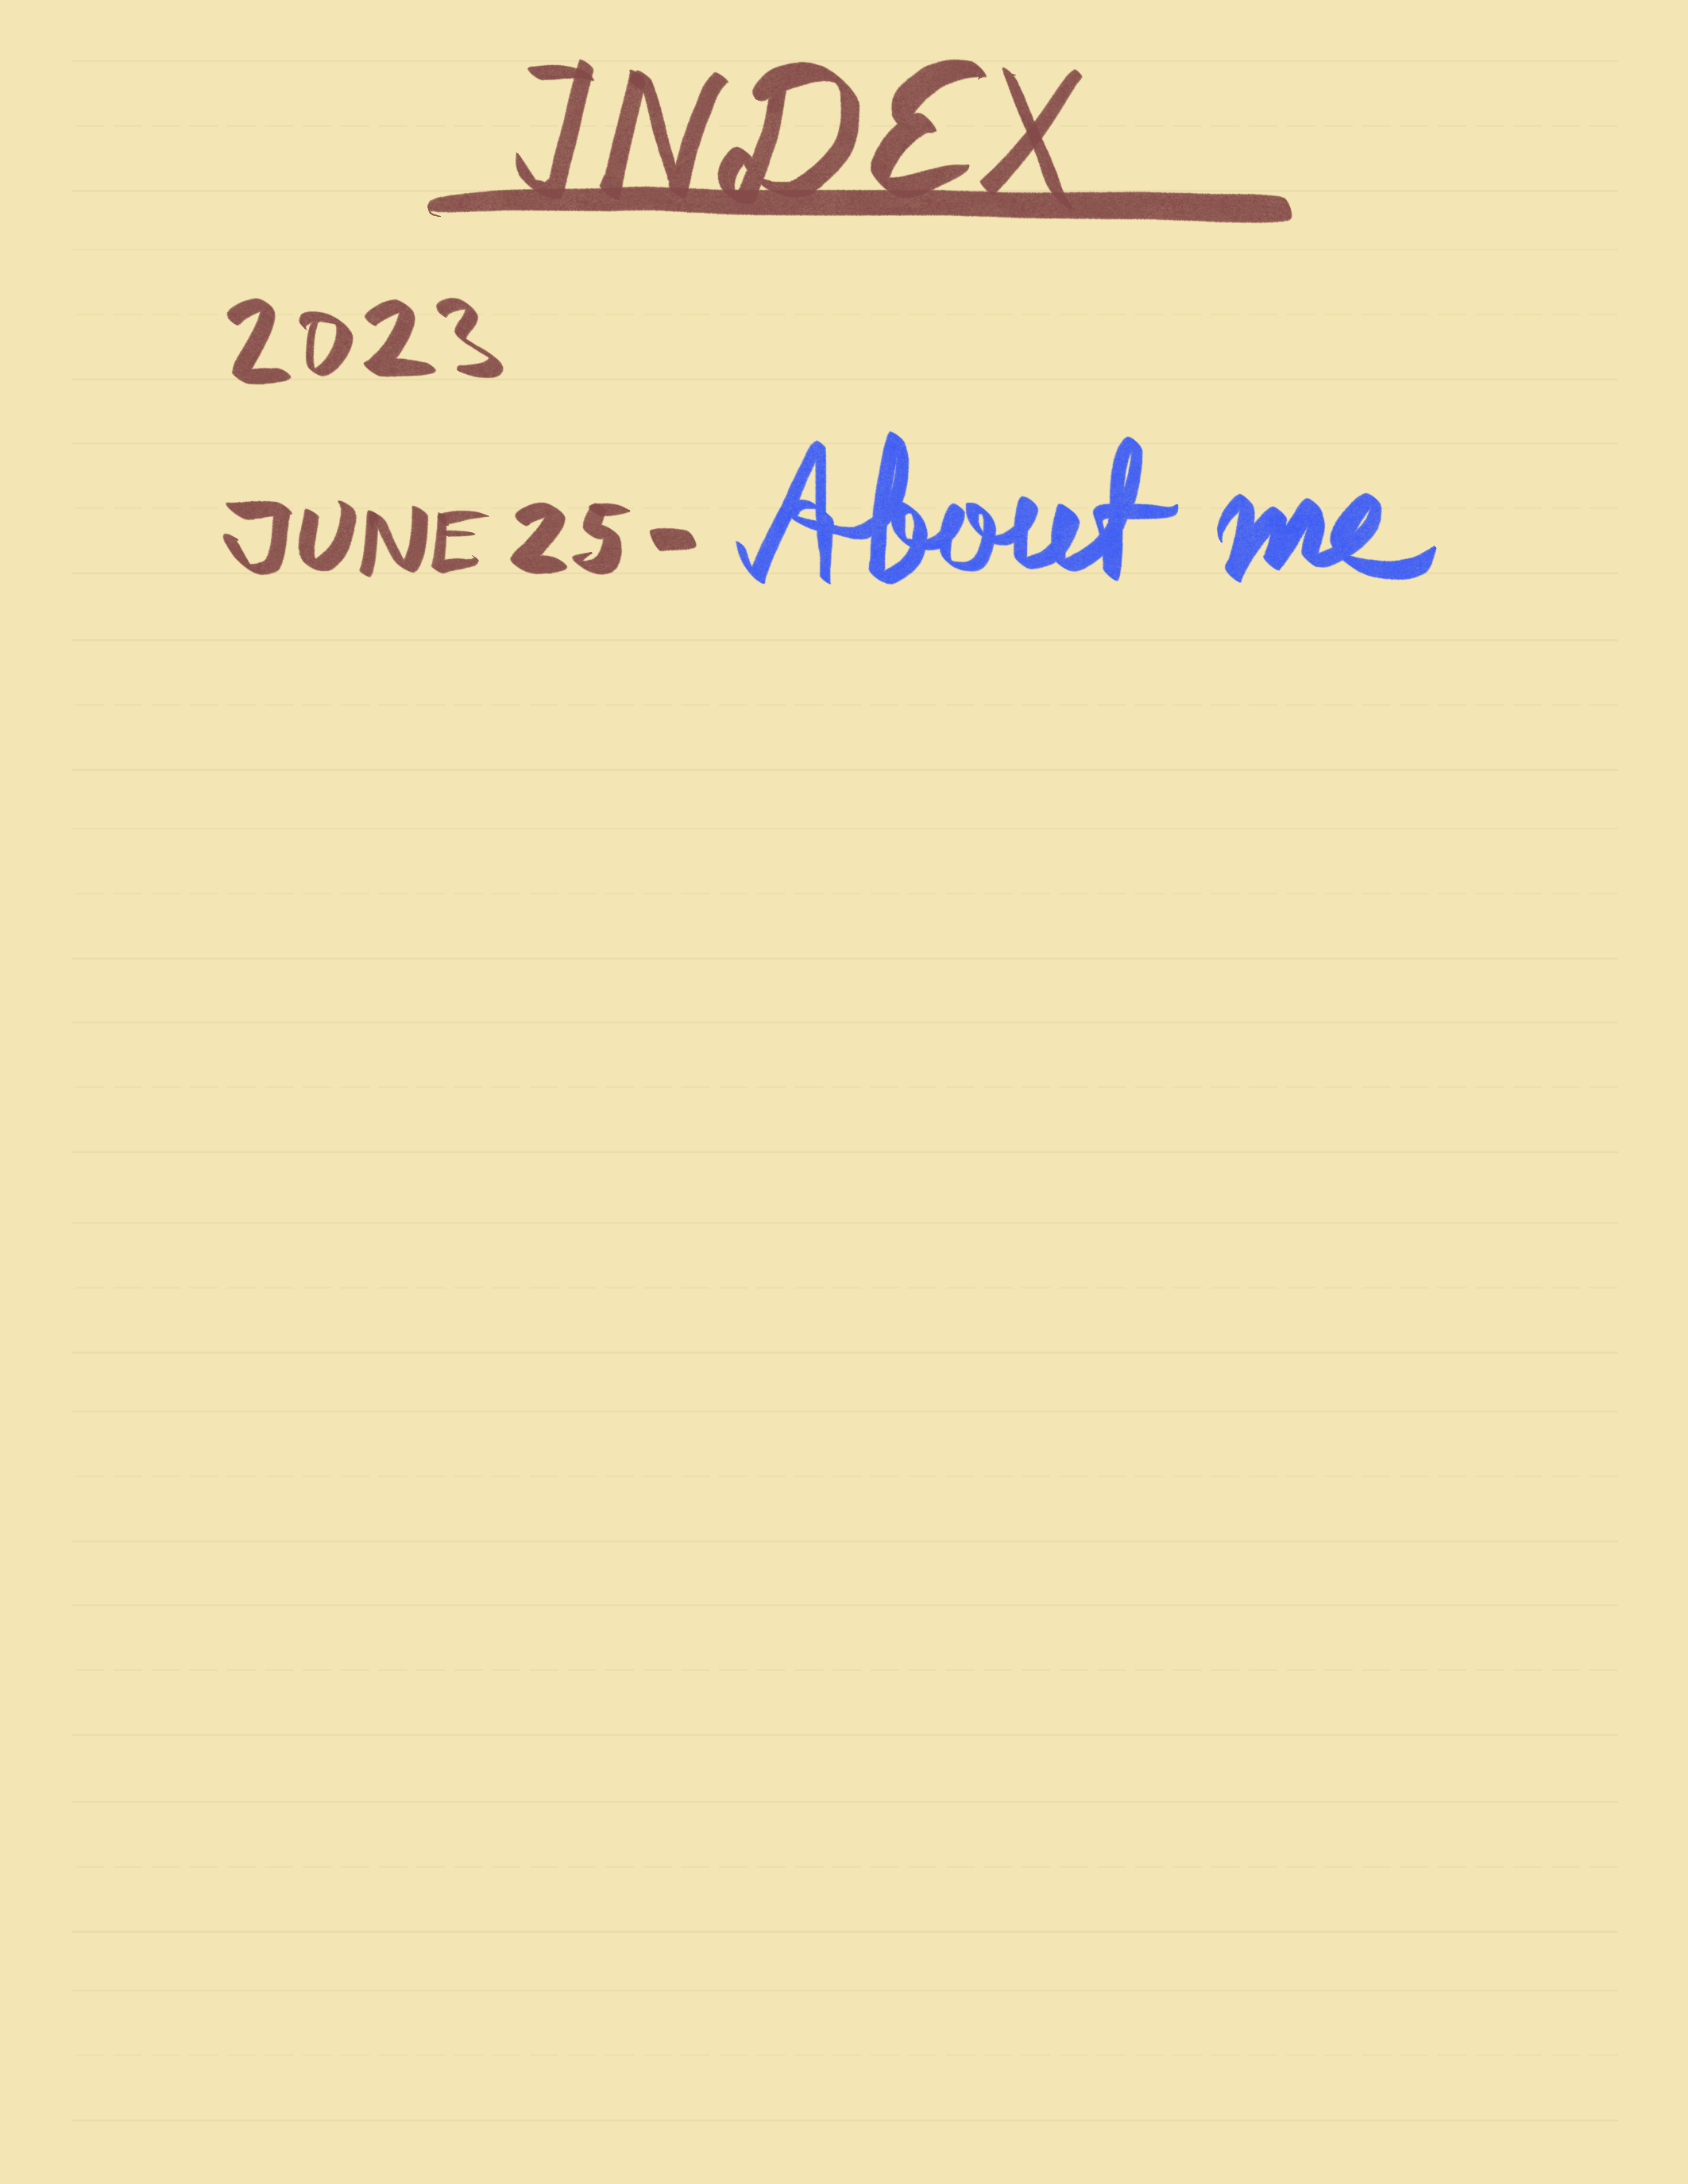 INDEX
2023
JUNE 25- About me